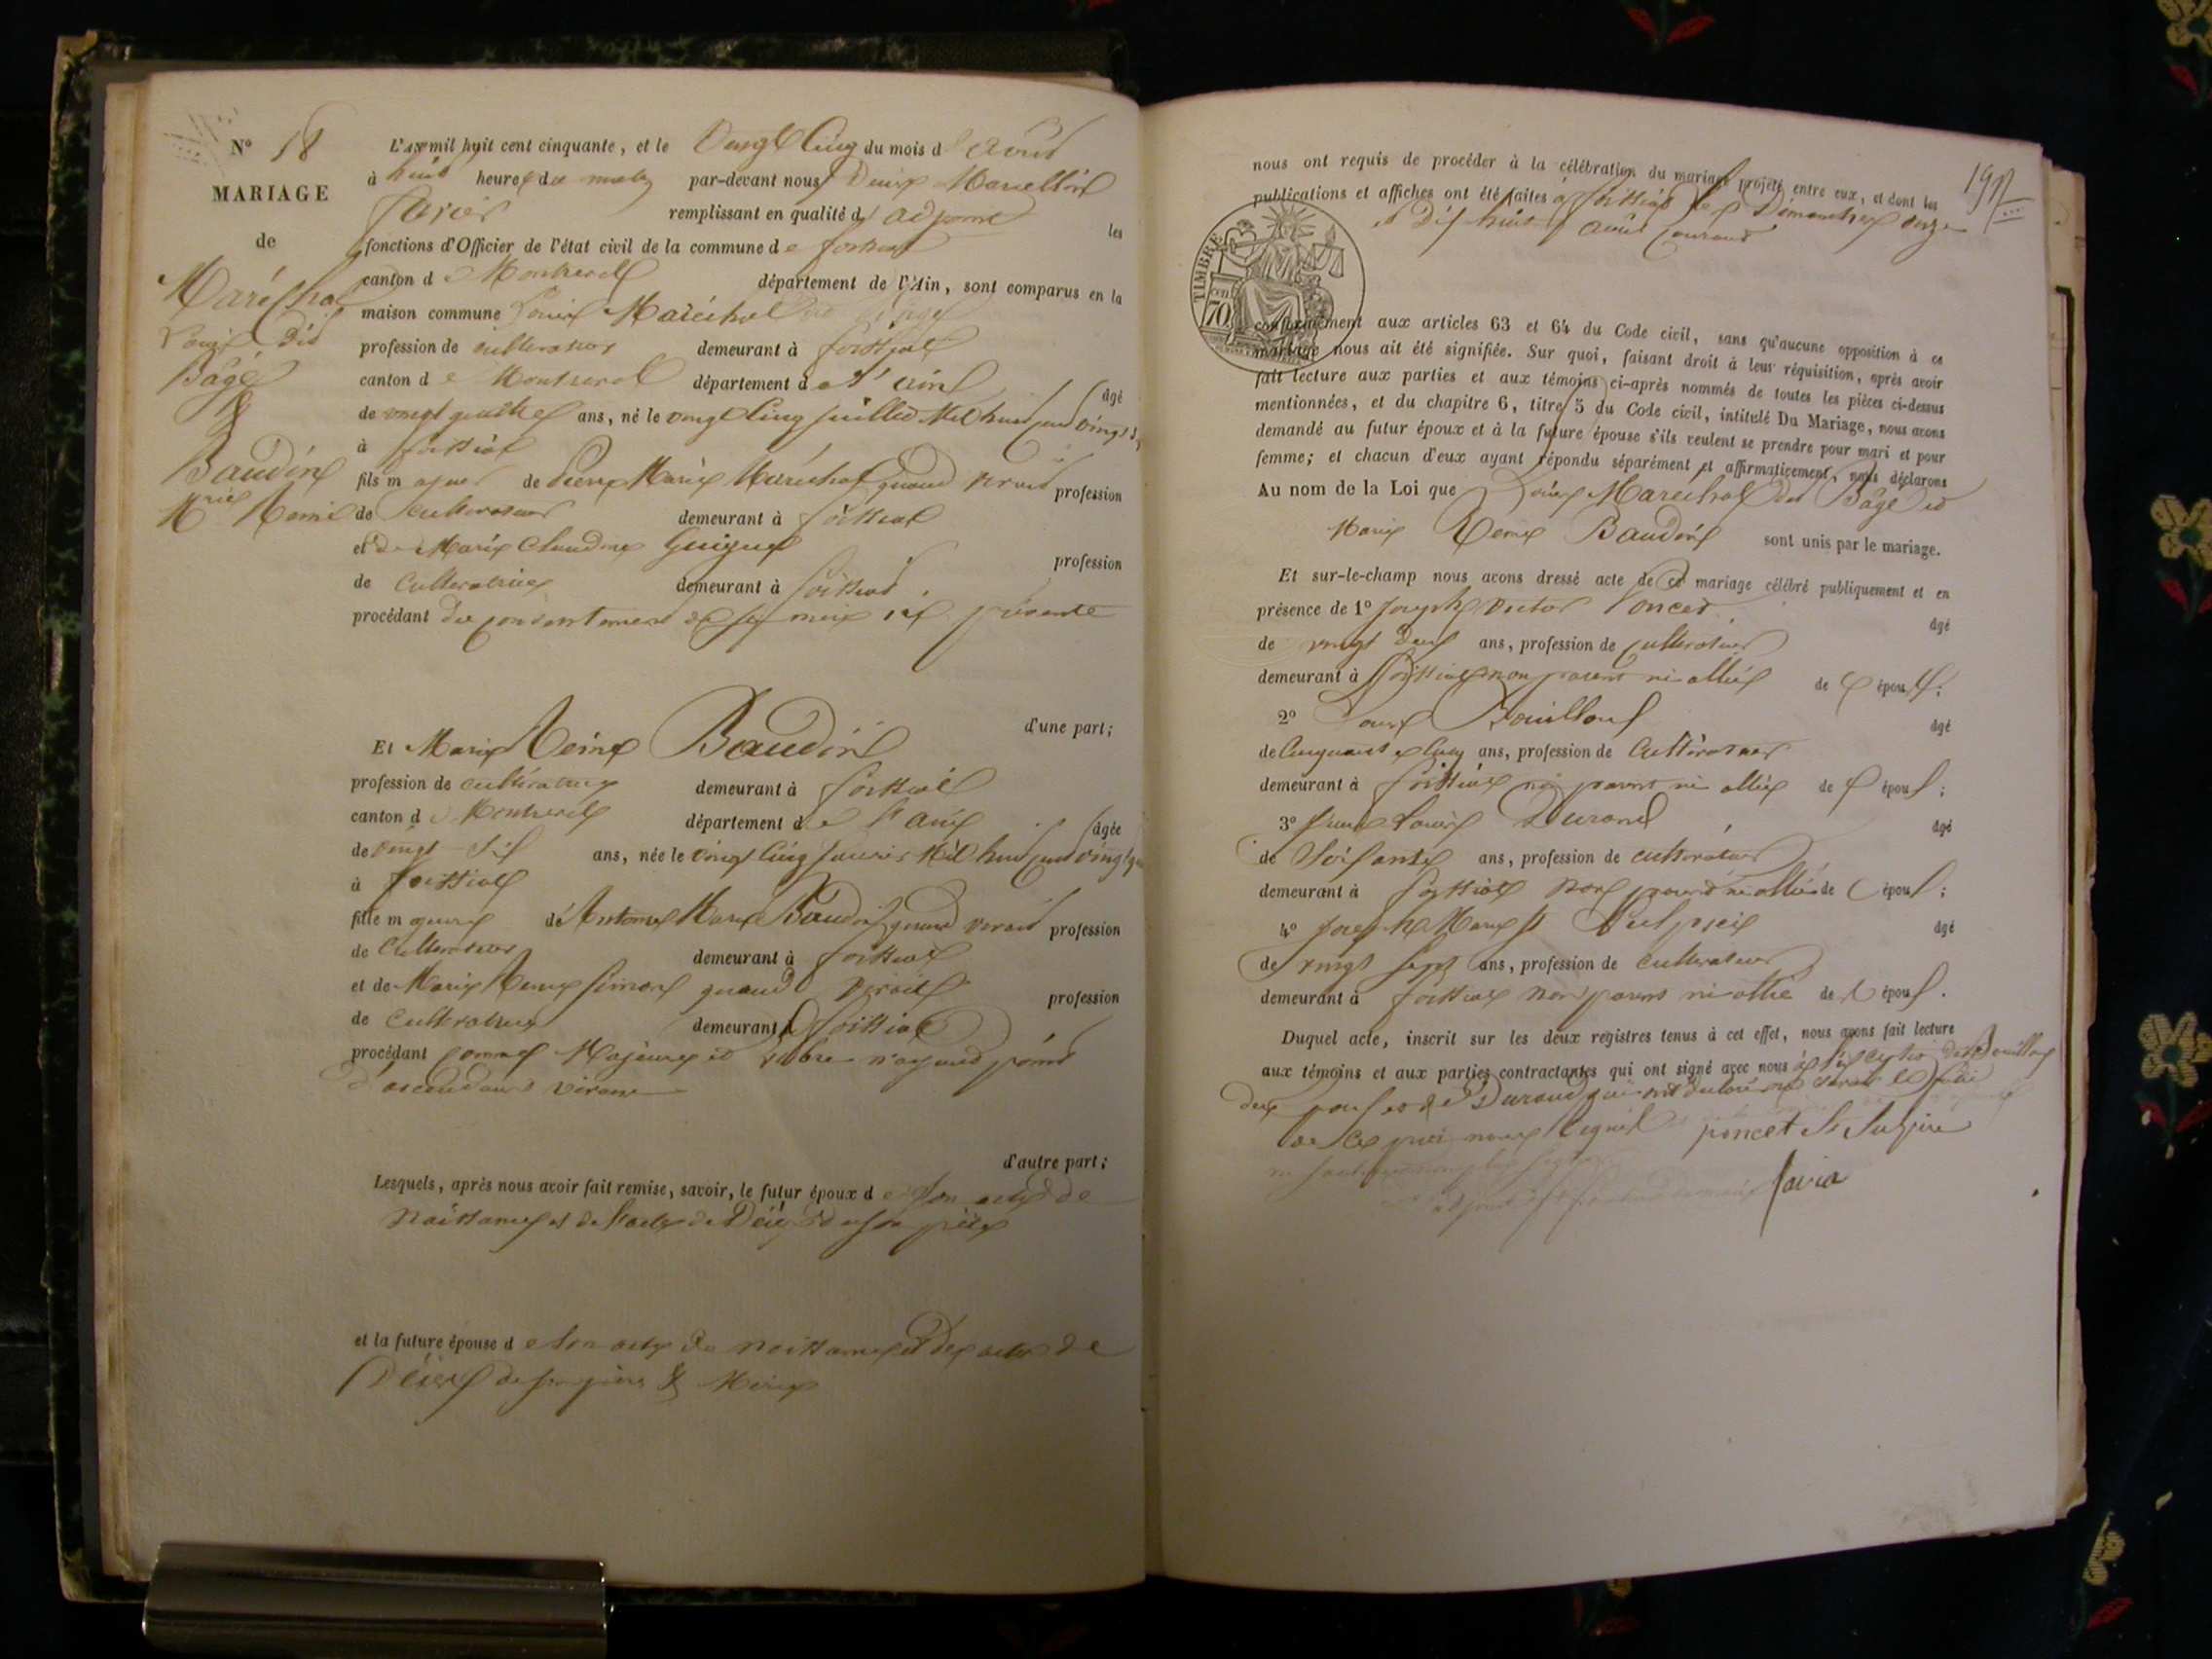 N° 18
MARIAGE
de
Maréchal
Louis dit
Bâgé
&
Baudin
Mrie Reine
L'an mil huit cent cinquante, et le vingt cinq du mois d'août
à huit heures du matin par-devant nous Denis Marcellin
Favier remplissant en qualité d'adjoint les
fonctions d'Officier de l'état civil de la commune de foissiat
canton de Montrevel département de l'Ain, sont comparus en la
maison commune Louis Maréchal dit Bâgé
profession de cultivateur demeurant à foissiat
canton de Montrevel département de l'ain âgé
de vingt quatre ans, né le vingt cinq juillet Mil huit cent vingt
à foissiat
fils majeur de Pierre Marie Maréchal quand vivait profession
de cultivateur demeurant à foissiat
et de Marie Claudine Guigue profession
de cultivatrice demeurant à foissiat
procédant du consentement de sa mère ici présente
d'une part;
Et Marie Reine Baudin
profession de cultivatrice demeurant à foissiat
canton de Montrevel département de l'ain âgée
de vingt six ans, née le vingt cinq janvier Mil huit cent vingt
à foissiat
fille majeure de Antoine Marie Baudin quand vivait profession
de cultivateur demeurant à foissiat
et de Marie Reine quand vivait profession
de cultivatrice demeurant à foissiat
procédant comme Majeure et libre n'ayant point
d'ascendants vivans
d'autre part;
Lesquels, après nous avoir fait remise, savoir, le futur époux de son acte de
Naissance et de l'acte de Décès de son père
et la future épouse de son acte de naissance et des actes de
Décès de ses père & Mère
197
nous ont requis de procéder à la célébration du mariage projeté entre eux, et dont les
publications et affiches ont été faites à foissiat les Dimanches onze
et Dix huit août courant
TIMBRE
70
conformément aux articles 63 et 64 du Code civil, sans qu'aucune opposition à ce
mariage nous ait été signifiée. Sur quoi, faisant droit à leur réquisition, après avoir
fait lecture aux parties et aux témoins ci-après nommés de toutes les pièces ci-dessus
mentionnées, et du chapitre 6, titre 5 du Code civil, intitulé Du Mariage, nous avons
demandé au futur époux et à la future épouse s'ils veulent se prendre pour mari et pour
femme; et chacun d'eux ayant répondu séparément et affirmativement, nous déclarons
Au nom de la Loi que Louis Maréchal dit Bâgé et
Marie Reine Baudin sont unis par le mariage.
Et sur-le-champ nous avons dressé acte de ce mariage célébré publiquement et en
présence de 1° Joseph Victor Poncet âgé
de vingt deux ans, profession de cultivateur
demeurant à foissiat non parent ni allié de époux;
2° Louis Bouilloux âgé
de cinquante cinq ans, profession de cultivateur
demeurant à foissiat ni parent ni allié de époux;
3° Louis Durand âgé
de soixante ans, profession de cultivateur
demeurant à foissiat non parent ni allié de époux;
4° Joseph Marie St Sulpice âgé
de vingt sept ans, profession de cultivateur
demeurant à foissiat non parent ni allié de époux.
Duquel acte, inscrit sur les deux registres tenus à cet effet, nous avons fait lecture
aux témoins et aux parties contractantes qui ont signé avec nous à l'exception de Bouilloux
des époux et de Durand qui ont déclaré ne savoir le faire
de ce par nous requis poncet St Sulpice
favier